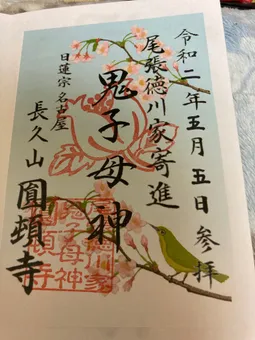 令和二年五月五日参拝
尾張徳川家寄進
鬼子母神
日蓮宗 名古屋
長久山 圓頓寺
尾張徳川家
鬼子母神
圓頓寺